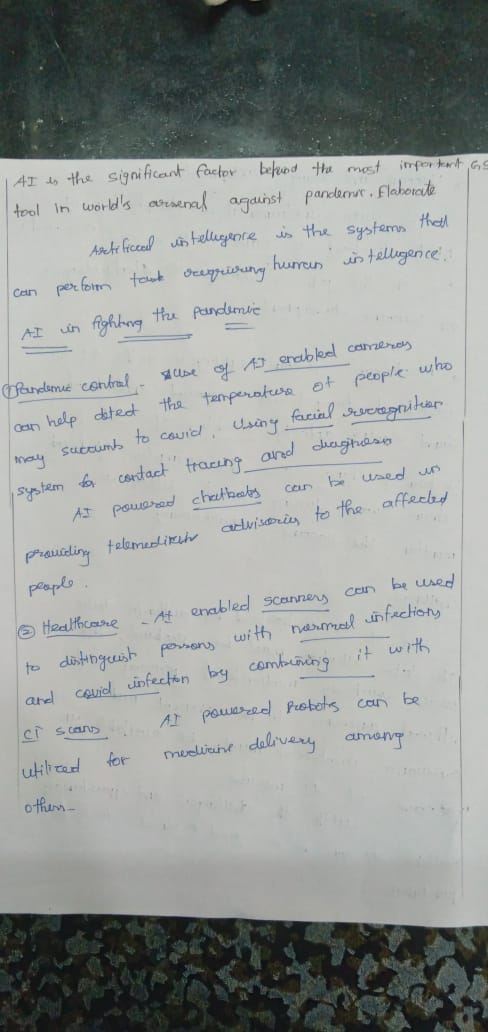 AI is the significant factor behind the most important GS
tool in world's arsenal against pandemic. Elaborate
Artificial intelligence is the systems that
can perform task requiring human intelligence.
AI in fighting the pandemic
① Pandemic control - use of AI enabled cameras
can help detect the temperature of people who
may succumb to covid. Using facial recognition
system for contact tracing and diagnosis
AI powered chatbots can be used in
providing telemedicine advisories to the affected
people.
② Healthcare - AI enabled scanners can be used
to distinguish persons with normal infections
and covid infection by combining it with
CT scans. AI powered Robots can be
utilized for medicine delivery among
others.